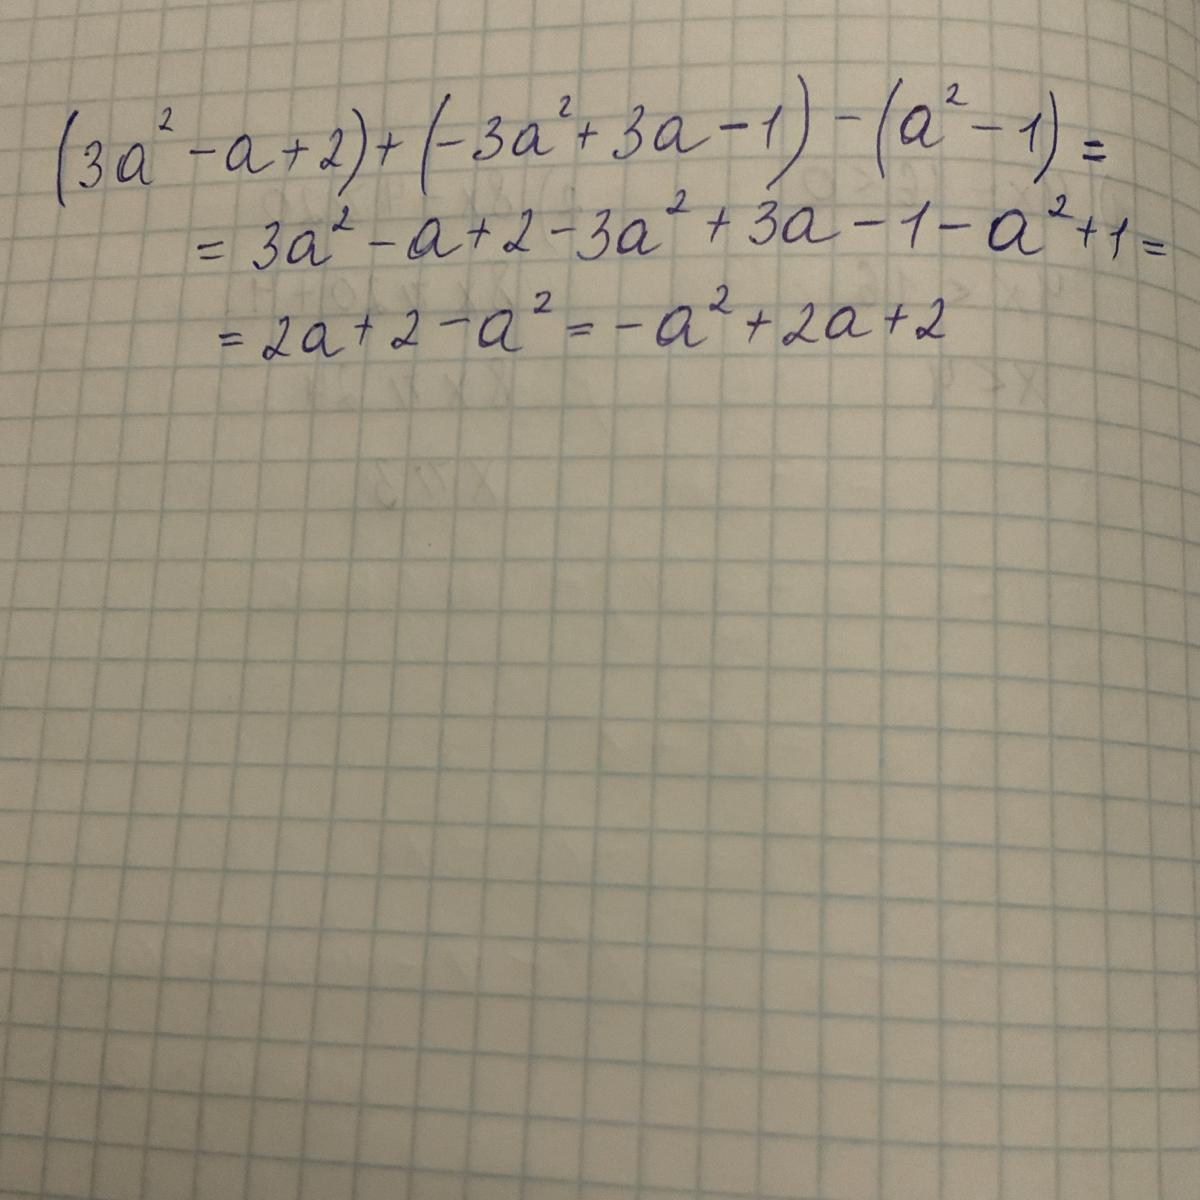 (3a² - a + 2) + (-3a² + 3a - 1) - (a² - 1) =
= 3a² - a + 2 - 3a² + 3a - 1 - a² + 1 =
= 2a + 2 - a² = -a² + 2a + 2